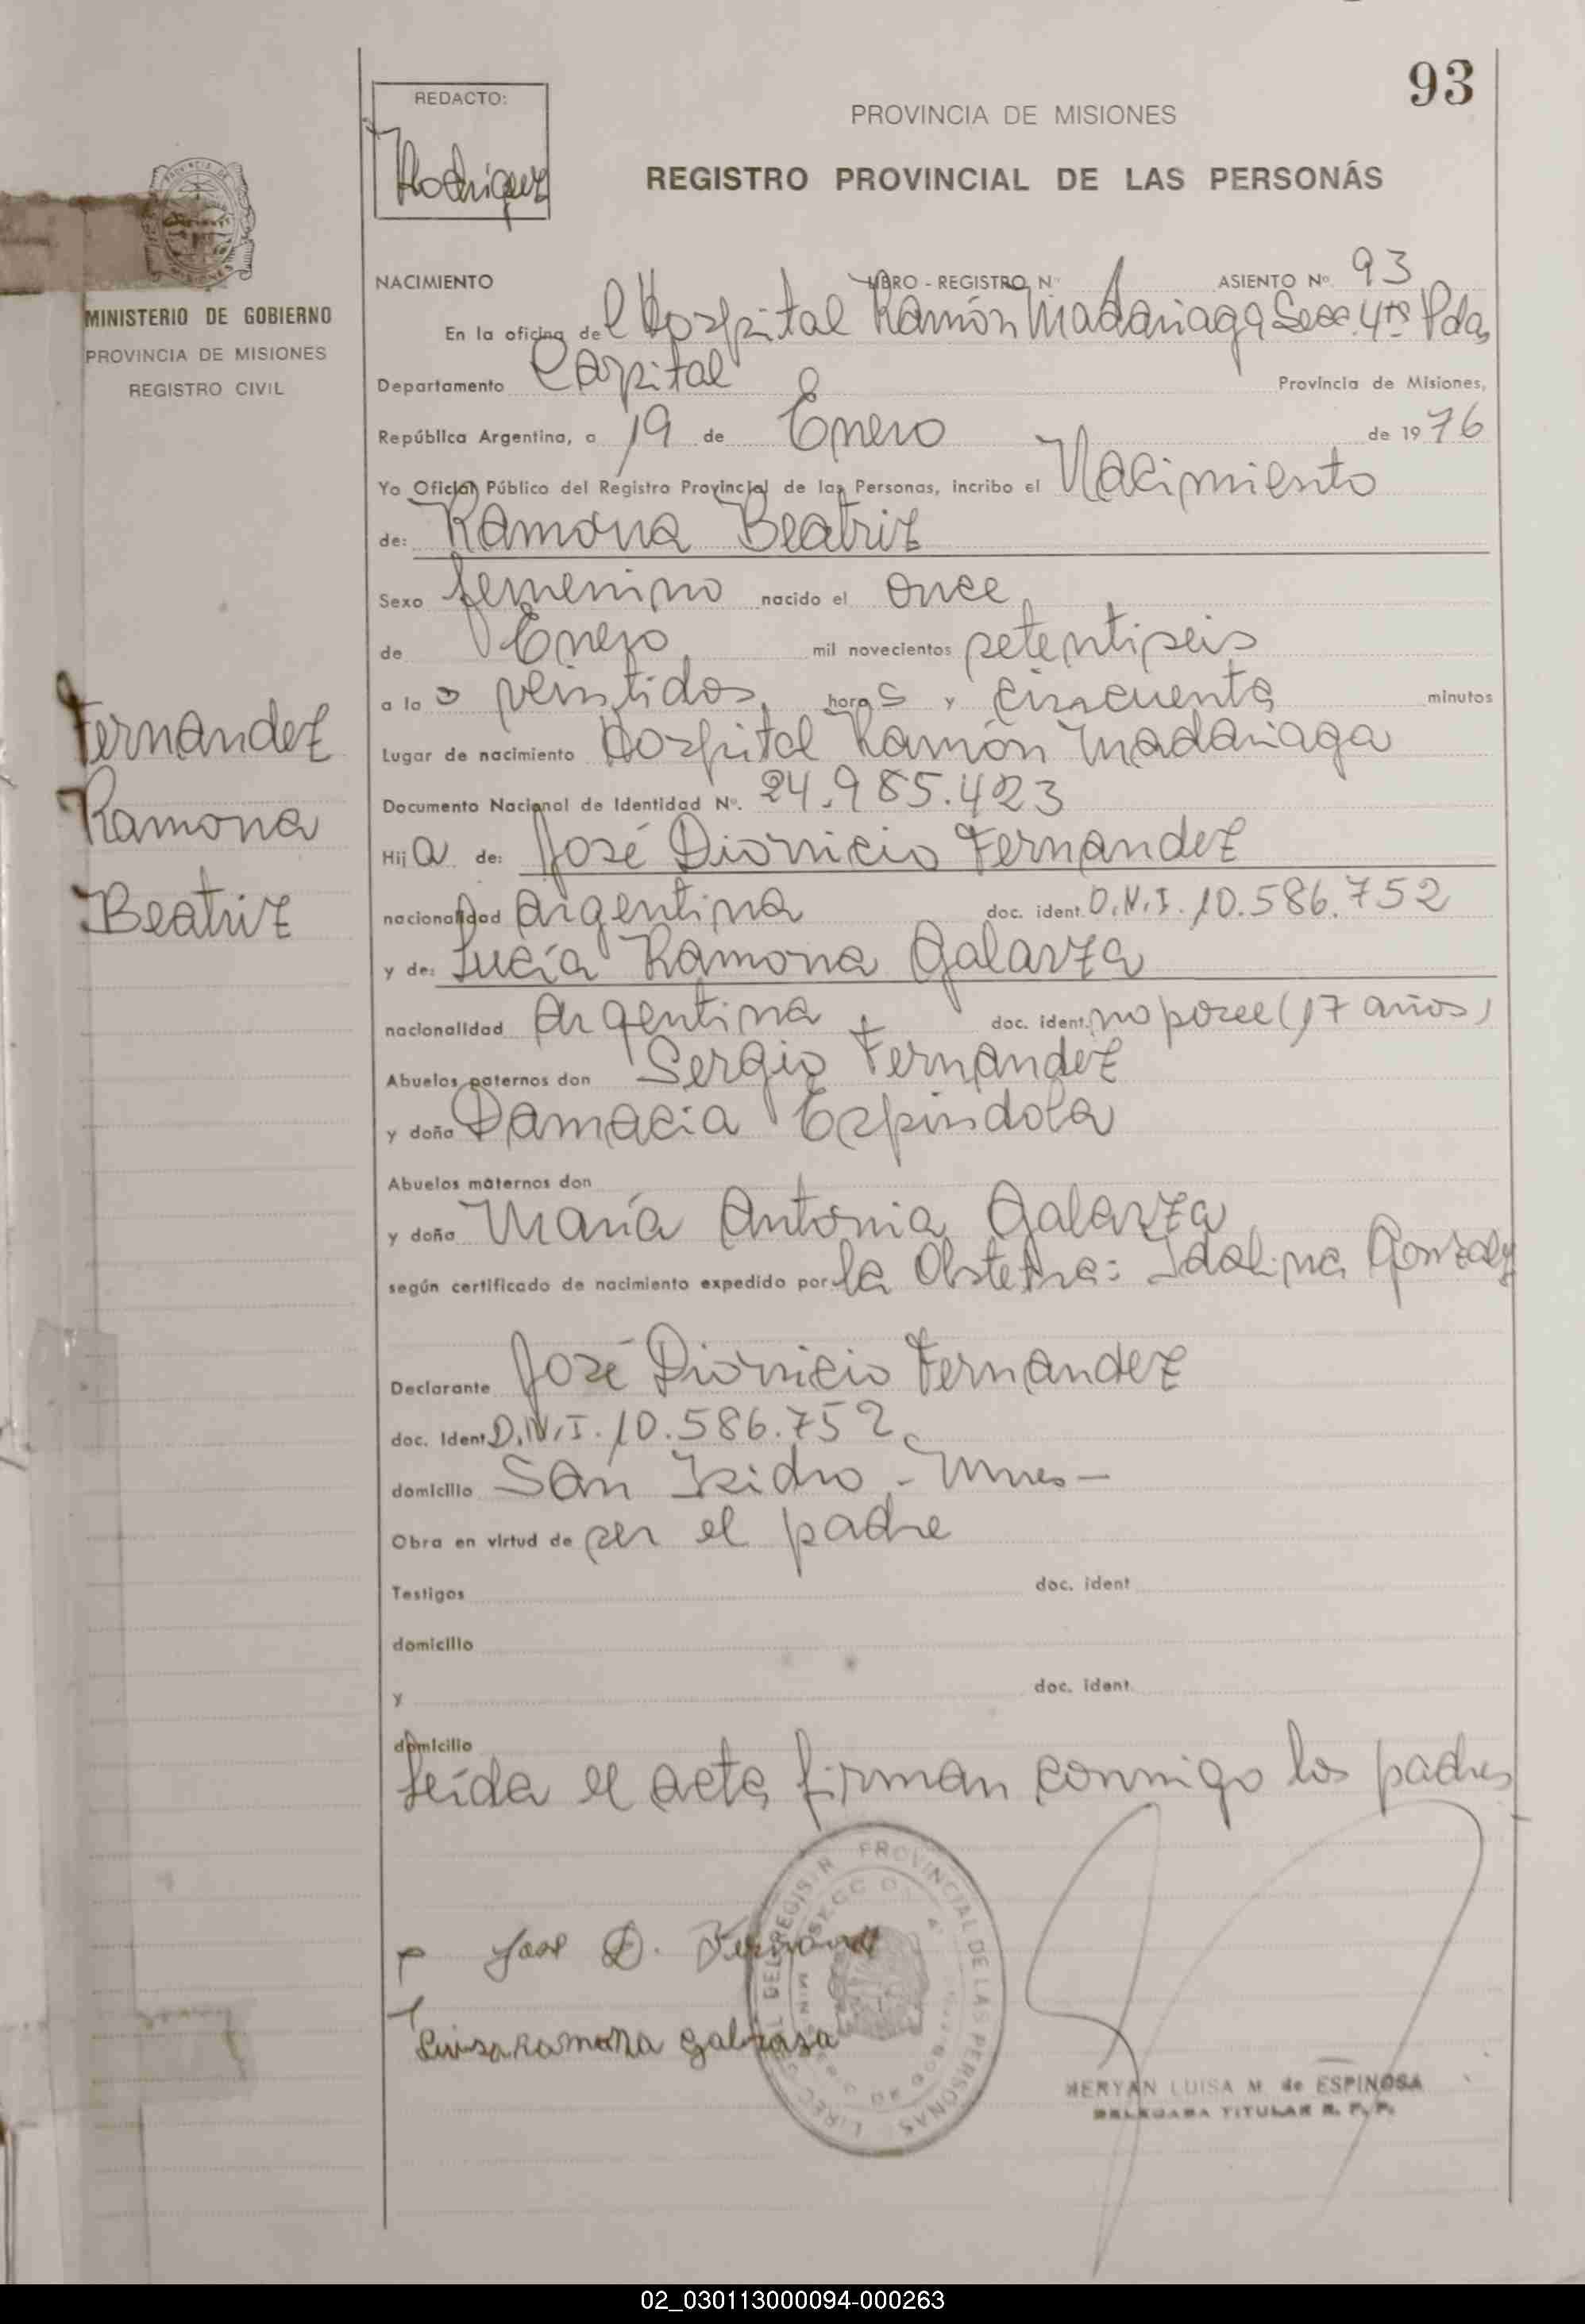 93
REDACTO:
Rodriguez
PROVINCIA DE MISIONES
REGISTRO PROVINCIAL DE LAS PERSONAS
MINISTERIO DE GOBIERNO
PROVINCIA DE MISIONES
REGISTRO CIVIL
NACIMIENTO LIBRO - REGISTRO Nº ASIENTO Nº 93
En la oficina del Hospital Ramón Madariaga Secc. 4ta Pdas
Departamento Capital Provincia de Misiones,
República Argentina, a 19 de Enero de 1976
Yo Oficial Público del Registro Provincial de las Personas, incribo el Nacimiento
de: Ramona Beatriz
Sexo femenino nacido el once
de Enero mil novecientos setentiseis
a las veintidos horas y cincuenta minutos
Lugar de nacimiento Hospital Ramón Madariaga
Documento Nacional de Identidad Nº. 24.985.423
Hija de: José Dionicio Fernandez
nacionalidad Argentina doc. ident. D.N.I. 10.586.752
y de: Lucía Ramona Galarza
nacionalidad Argentina doc. ident. no posee (17 años)
Abuelos paternos don Sergio Fernandez
y doña Damacia Espindola
Abuelos maternos don
y doña María Antonia Galarza
según certificado de nacimiento expedido por la Obstetra: Idalina Gonzalez
Declarante José Dionicio Fernandez
doc. Ident D.N.I. 10.586.752
domicilio San Isidro - Mnes -
Obra en virtud de ser el padre
Testigos doc. ident
domicilio
y doc. ident
domicilio
Leída el acta firman conmigo los padres
Fernandez
Ramona
Beatriz
Jose D. Fernand
Luisa Ramona Galarza
DIREC GRAL DEL REGISTR PROVINCIAL DE LAS PERSONAS
SECC 4ª
MERYAN LUISA M. de ESPINOSA
DELEGADA TITULAR R. P. P.
02_030113000094-000263